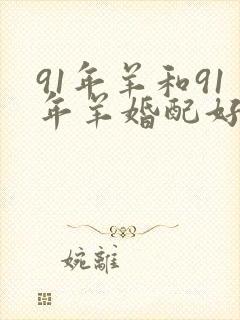 91年羊和91
年羊婚配好
婉離